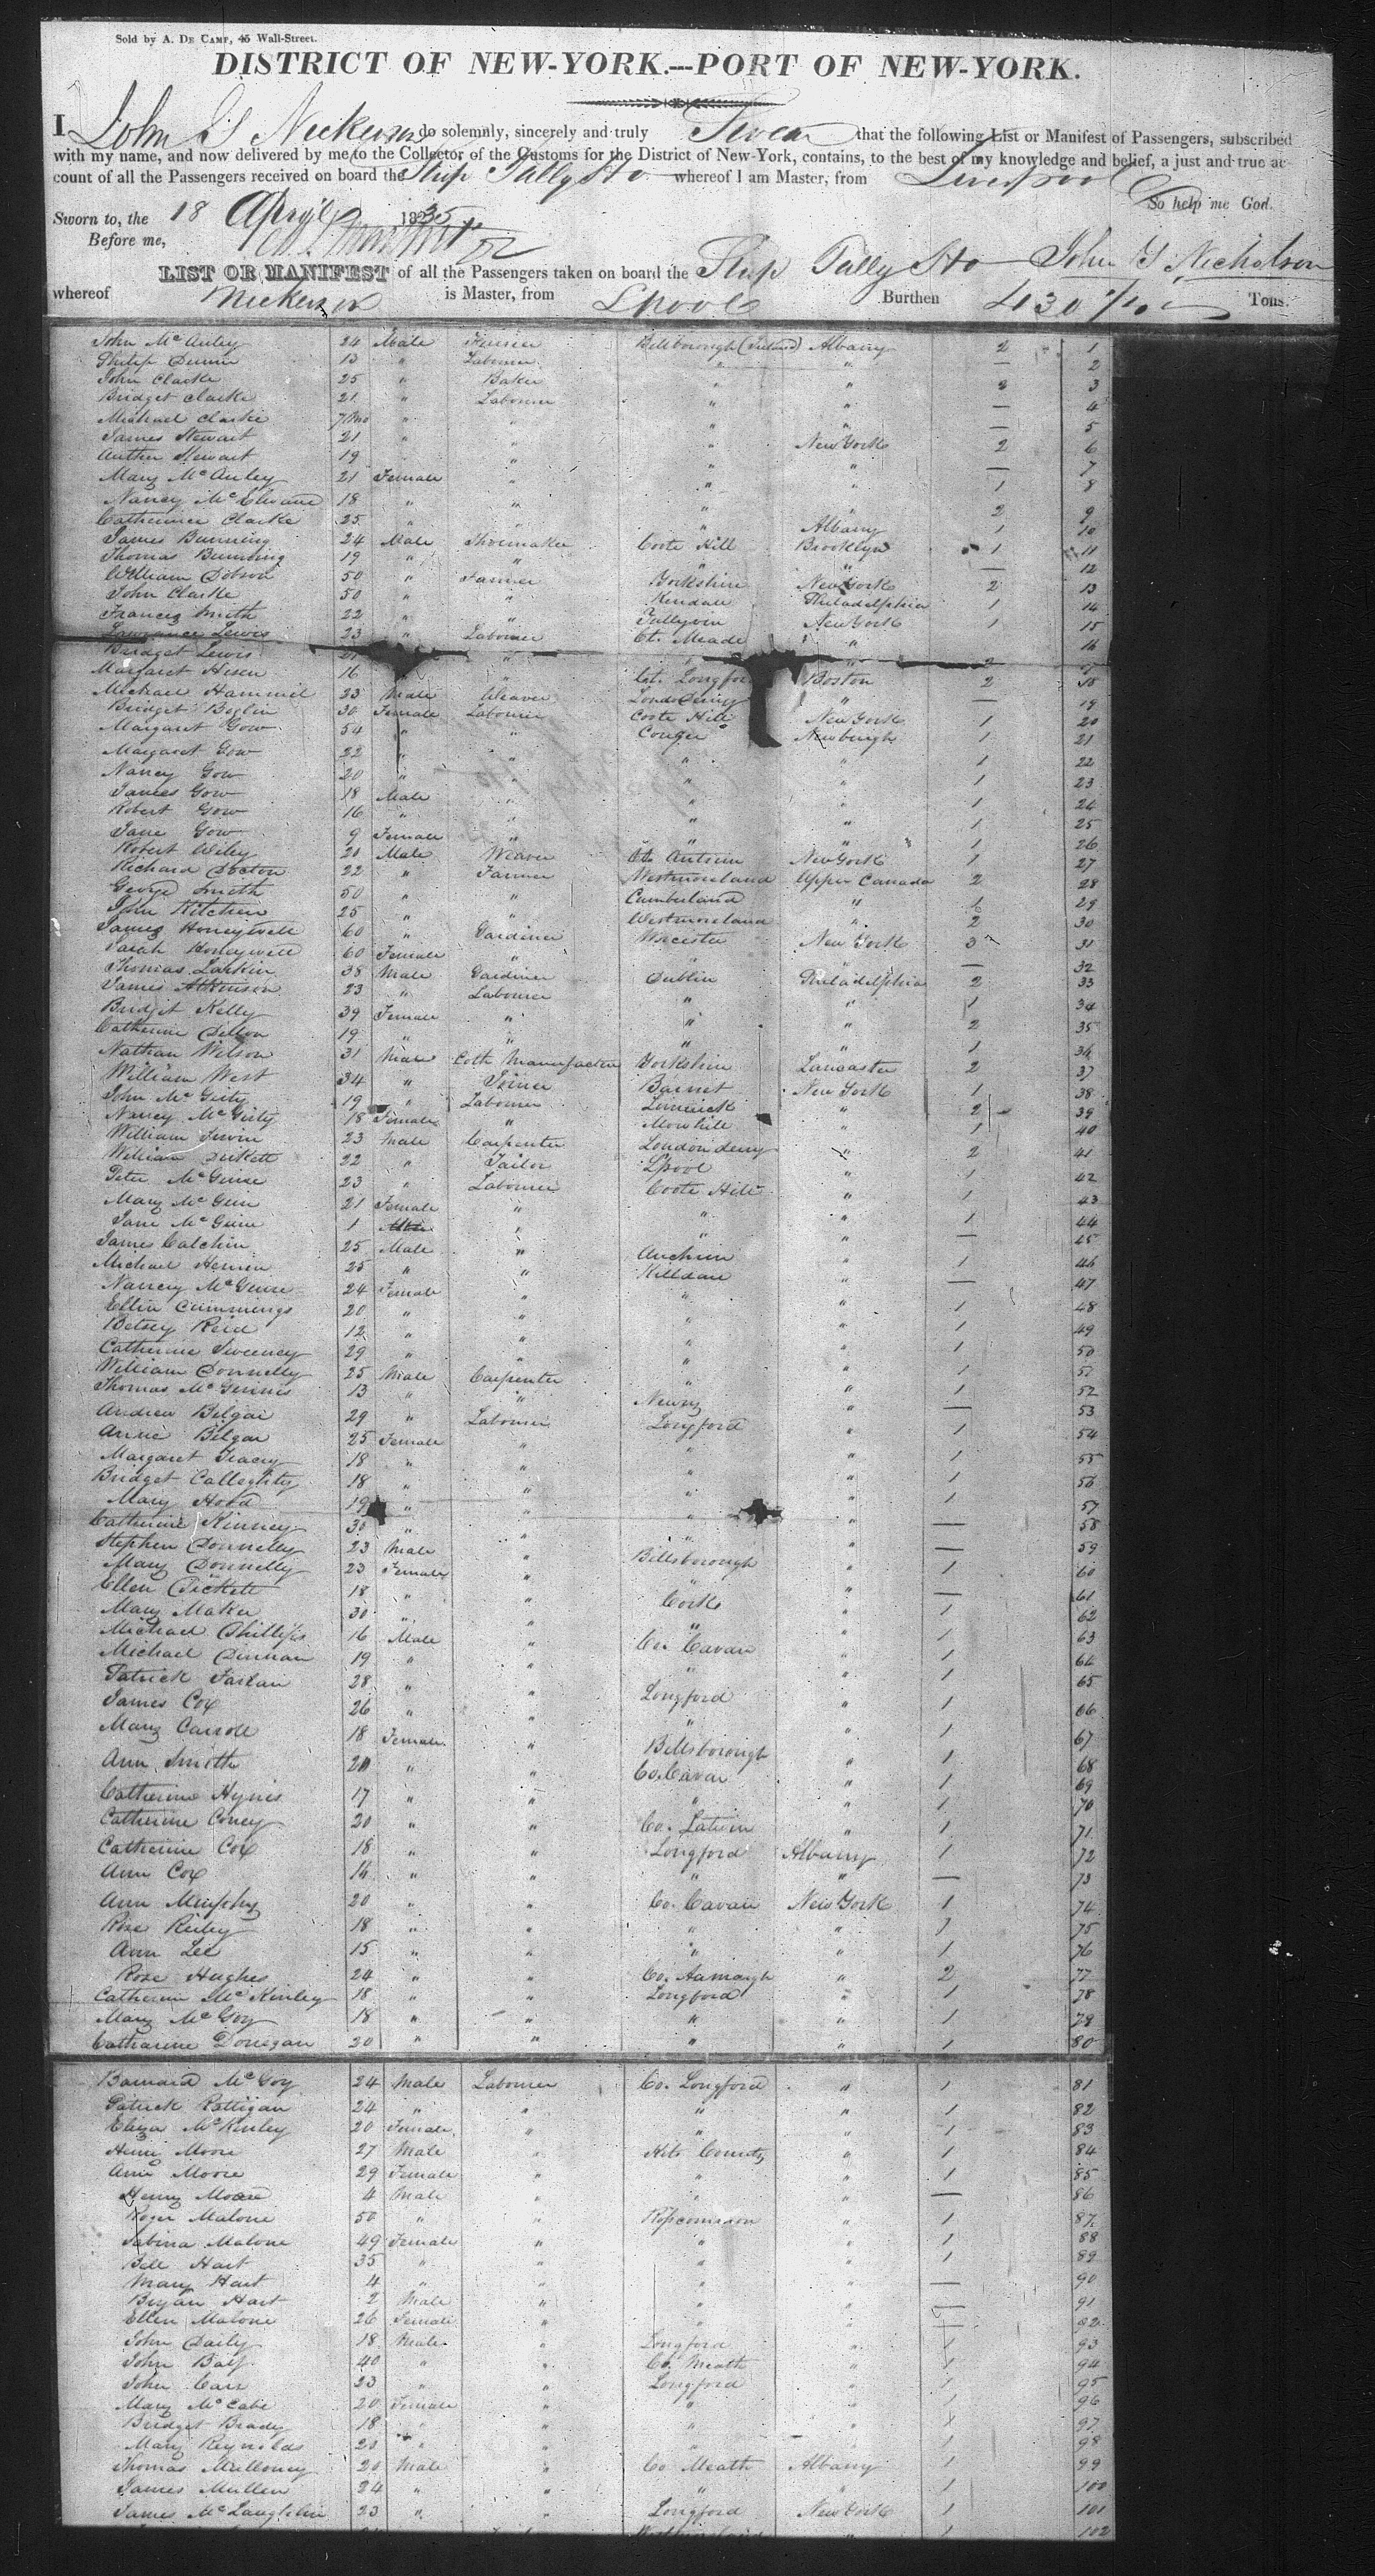 Sold by A. De Camp, 45 Wall-Street.
DISTRICT OF NEW-YORK.---PORT OF NEW-YORK.
I, John do solemnly, sincerely and truly Swear that the following List or Manifest of Passengers, subscribed
with my name, and now delivered by me to the Collector of the Customs for the District of New-York, contains, to the best of my knowledge and belief, a just and true ac-
count of all the Passengers received on board the Ship Tally Ho whereof I am Master, from Liverpool
Sworn to, the 18 April 1835 So help me God.
Before me,
LIST OR MANIFEST of all the Passengers taken on board the Ship Tally Ho John Nicholson
whereof is Master, from Lpool Burthen 430 Tons.
John McAuley 24 Male Farmer Albany 2 1
Philip Dunn 13 " Labourer " " — 2
John Clarke 25 " Baker " " 3
Bridget Clarke 21 " Labourer " " — 4
Michael Clarke 7 mo " " " " — 5
James Stewart 21 " " " New York 2 6
Stewart 19 " " " — 7
Mary McAuley 21 Female " " " 1 8
Nancy 18 " " " " 2 9
Catherine Clarke 25 " " " Albany 1 10
James Bunning 24 Male Shoemaker Coote Hill Brooklyn 1 11
Thomas Bunning 19 " " " " — 12
William Dobson 50 " Farmer Yorkshire New York 2 13
John Clarke 50 " " Kendale Philadelphia 1 14
Smith 22 " " New York 1 15
Lawrance Lewis 23 " Labourer Ct. Meade " 16
Bridget Lewis "
Margaret 16 " Ct. Longford Boston 2 18
Michael Hammil 23 Male Weaver " — 19
Bridget 30 Female Labourer Coote Hill New York 1 20
Margaret Gow 54 " " Newburgh 1 21
Margaret Gow 22 " " " " 1 22
Nancy Gow 20 " " " " 1 23
James Gow 18 Male " " " 1 24
Robert Gow 16 " " " " 1 25
Jane Gow 9 Female " " " 1 26
Robert Wiley 21 Male Weaver Ct. Antrim New York 1 27
Richard 22 " Farmer Westmoreland Upper Canada 2 28
George Smith 50 " " Cumberland " 1 29
John Kitchen 25 " " Westmoreland " 2 30
James Honeywell 60 " Gardiner Worcester New York 3 31
Sarah Honeywell 60 Female " " " — 32
Thomas Larkin 38 Male Gardiner Dublin Philadelphia 2 33
James Atkinson 23 " Labourer " " 1 34
Bridget Kelly 39 Female " " " 2 35
Catherine Dillon 19 " " " " 1 36
Nathan Wilson 31 Male Yorkshire Lancaster 2 37
William West 34 " Joiner Barnet New York 1 38
John McGirty 19 " Labourer Limerick " 2 39
Nancy McGirty 18 Female " " 1 40
William 23 Male Carpenter Londonderry " 2 41
William 22 " Tailor Lpool " 1 42
Peter 23 " Labourer Coote Hill " 1 43
Mary 21 Female " " " 1 44
Jane 1 " " " — 45
James 25 Male " " 1 46
Michael 25 " " Killdare " — 47
Nancy 24 Female " " " 1 48
Ellin Cummings 20 " " " " 1 49
Betsey Reid 12 " " " " 50
Catherine Sweeney 29 " " " " 1 51
William Donnelly 25 Male Carpenter " " 1 52
Thomas 13 " " Newry " — 53
Andrew 29 " Labourer Longford " 54
Anne 25 Female " " " 1 55
Margaret Tracey 18 " " " " 1 56
Bridget 18 " " " " 1 57
Mary Hood 19 " " " " — 58
Catherine Kinney 30 " " " " — 59
Stephen Donnelly 23 Male " " 1 60
Mary Donnelly 23 Female " " " — 61
Ellen 18 " " Cork " 1 62
Mary Maher 30 " " " " 1 63
Michael Phillips 16 Male " Co. Cavan " 1 64
Michael 19 " " " " 1 65
Patrick 28 " " Longford " 1 66
James Cox 26 " " " " 1 67
Mary Carroll 18 Female " " 1 68
Ann Smith " " Co. Cavan " 1 69
Catherine Hynes 17 " " " " 1 70
Catherine Coney 20 " " Co. " 1 71
Catherine Cox 18 " " Longford Albany 1 72
Ann Cox " " " " — 73
Ann Murphy 20 " " Co. Cavan New York 1 74
Rose Reiley 18 " " " " 1 75
Ann Lee 15 " " " " 1 76
Rose Hughes 24 " " " 2 77
Catherine McKinley 18 " " Longford " 1 78
Mary McGoy 18 " " " " 1 79
Catharine Donegan 20 " " " " 1 80
Barnard McGoy 24 Male Labourer Co. Longford " 1 81
Patrick Rattigan 24 " " " " 1 82
Eliza McKinley 20 Female " " " 1 83
Moore 27 Male " County " 1 84
Ann Moore 29 Female " " " 1 85
Henry Moore 4 Male " " " — 86
Roger Malone 50 " " Roscommon " 1 87
Sabina Malone 49 Female " " " 1 88
Bell Hart 35 " " " " 1 89
Mary Hart 4 " " " " — 90
Bryan Hart 2 Male " " " — 91
Ellen Malone 26 Female " " " 92
John Daily 18 Male " Longford " 1 93
John 40 " " Co. Meath " 1 94
John Carr 23 " " Longford " 1 95
Mary McCabe 20 Female " " " 1 96
Bridget Brady 18 " " " " 1 97
Mary Reynolds 20 " " " " 1 98
Thomas Mulloney 20 Male " Co Meath Albany 1 99
James Mullen 24 " " " " 1 100
James McLaughlin 23 " " Longford New York 1 101
1 102